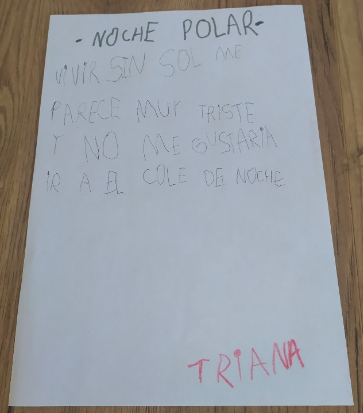 - NOCHE POLAR-
ViViR SIN SOL ME
PARECE MUY TRISTE
Y NO ME GUSTARIA
iR A EL COLE DE NOCHE
TRiANA